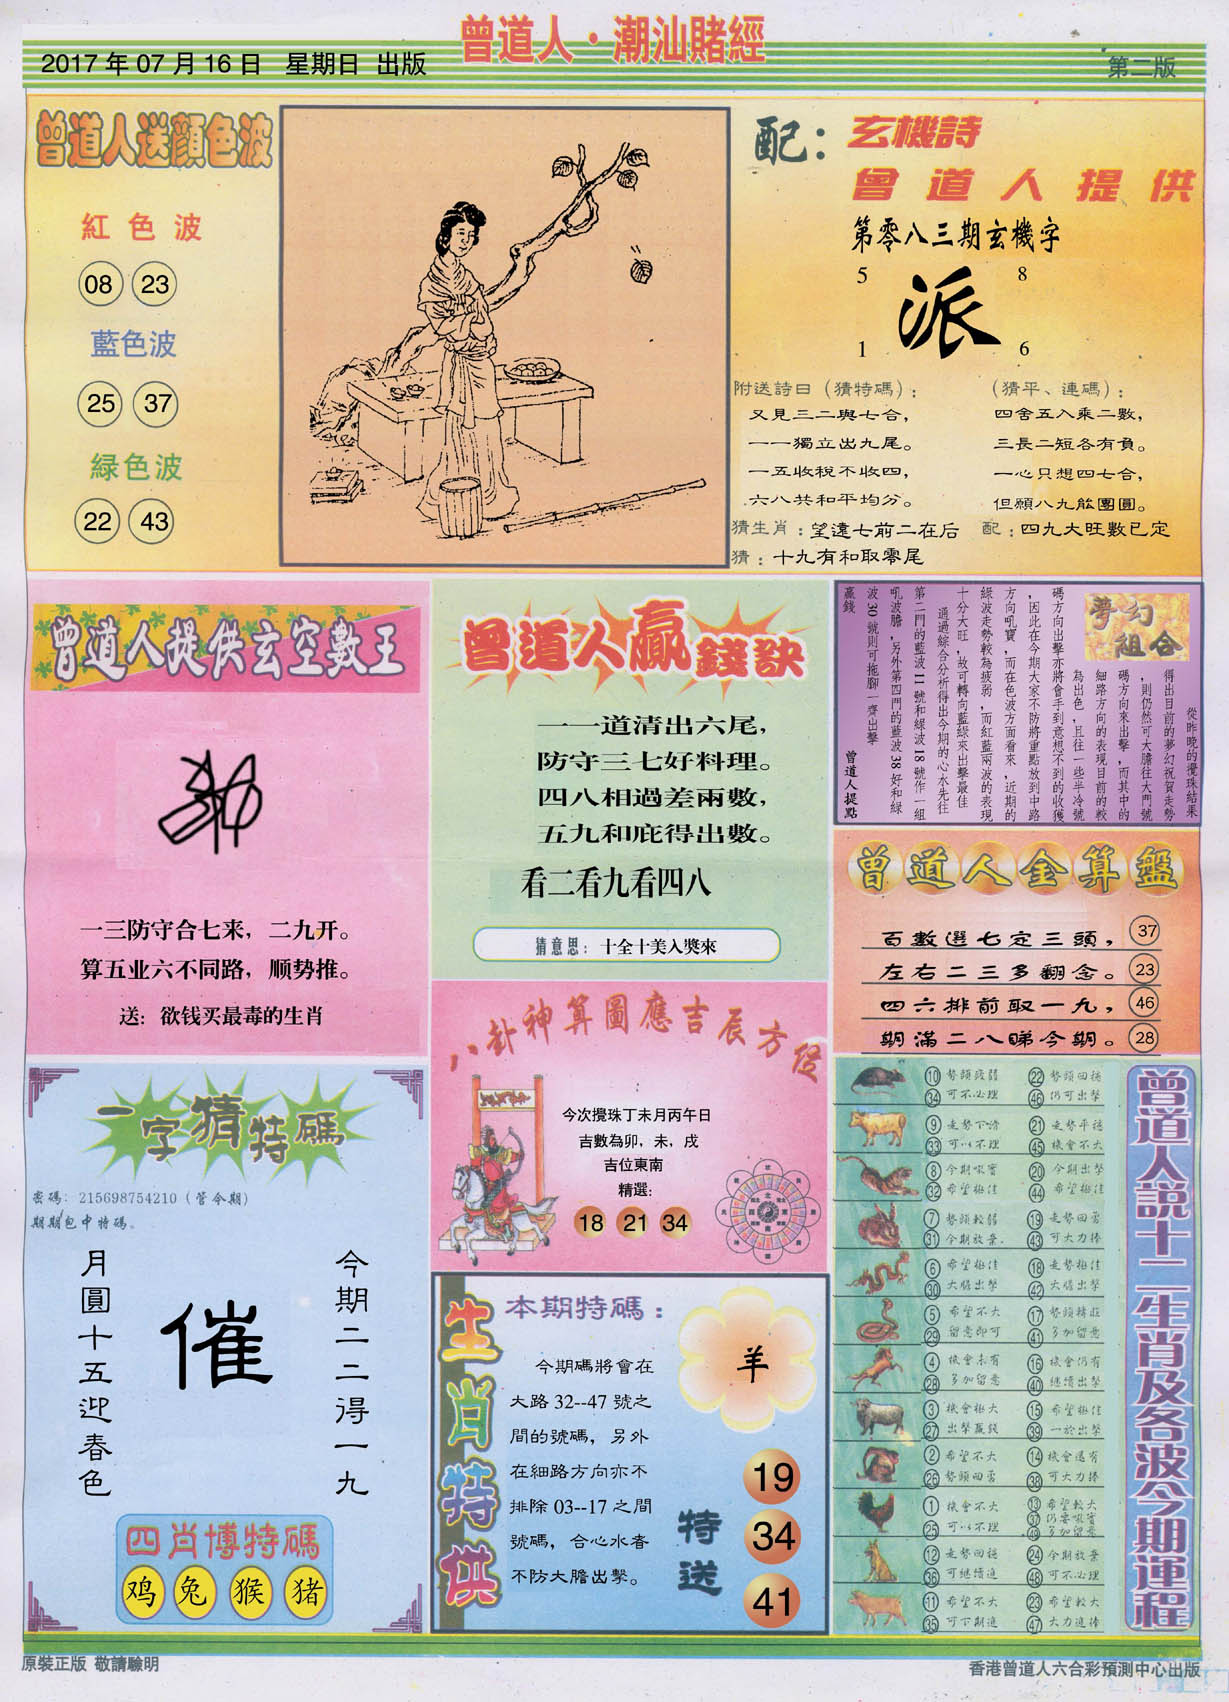 曾道人·潮汕賭經
2017年07月16日 星期日 出版
第二版
曾道人送顏色波
紅色波
08 23
藍色波
25 37
緑色波
22 43
配：玄機詩
曾道人提供
第零八三期玄機字
5 8
派
1 6
附送詩曰（猜特碼）：
又見三二與七合，
一一獨立出九尾。
一五收稅不收四，
六八共和平均分。
（猜平、連碼）：
四舍五入乘二數，
三長二短各有負。
一心只想四七合，
但願八九能團圓。
猜生肖：望遠七前二在后
配：四九大旺數已定
猜：十九有和取零尾
曾道人提供玄空數王
一三防守合七来，二九开。
算五业六不同路，顺势推。
送：欲钱买最毒的生肖
曾道人贏錢訣
一一道清出六尾，
防守三七好料理。
四八相過差兩數，
五九和庇得出數。
看二看九看四八
猜意思：十全十美入獎來
夢幻組合
從昨晚的攪珠結果
得出目前的夢幻祝賀走勢
，則仍然可大膽往大門號
碼方向來出擊，而其中的
細路方向的表現目前的較
為出色，且往一些半冷號
碼方向出擊亦將會手到意想不到的收獲
，因此在今期大家不防將重點放到中路
方向吼寶，而在色波方面看來，近期的
綠波走勢較為疲弱，而紅藍兩波的表現
十分大旺，故可轉向藍綠來出擊最佳
通過綜合分析得出今期的心水先往
第二門的藍波11號和綠波18號作一組
吼波膽，另外第四門的藍波38好和綠
波30號則可拖腳一齊出擊
贏錢
曾道人提點
曾道人金算盤
百數選七定三頭， 37
左右二三多翻念。 23
四六排前取一九， 46
期滿二八睇今期。 28
一字猜特碼
密碼：215698754210（管今期）
期期包中特碼。
今期二二得一九
催
月圓十五迎春色
四肖博特碼
鸡 兔 猴 猪
八卦神算圖應吉辰方位
今次攪珠丁未月丙午日
吉數為卯，未，戌
吉位東南
精選：
18 21 34
生肖特供
本期特碼：
今期碼將會在
大路32--47號之
間的號碼，另外
在細路方向亦不
排除03--17之間
號碼，合心水者
不防大膽出擊。
羊
特送
19
34
41
曾道人説十二生肖及各波今期運程
10 34 勢頭疲弱 可不必理
22 46 勢頭回穩 仍可出擊
9 33 走勢下滑 可以不理
21 45 走勢平穩 機會不大
8 32 今期吼寶 希望極佳
20 44 今期出擊 希望極佳
7 31 勢頭較弱 今期放棄
19 43 走勢回勇 可大力捧
6 30 希望極佳 大膽出擊
18 42 走勢極佳 大膽出擊
5 29 希望不大 留意即可
17 41 勢頭轉旺 多加留意
4 28 機會未有 多加留意
16 40 機會仍有 繼續出擊
3 27 機會極大 出擊贏錢
15 39 希望極佳 一於出擊
2 26 希望不大 勢頭回勇
14 38 機會還有 可大力捧
1 25 機會不大 可以不理
13 37 49 希望較大 仍要吼寶 多加留意
12 36 走勢回穩 可繼續追
24 48 今期放棄 可不必理
11 35 希望不大 可下期追
23 47 希望較大 大力追捧
原裝正版 敬請驗明
香港曾道人六合彩預測中心出版